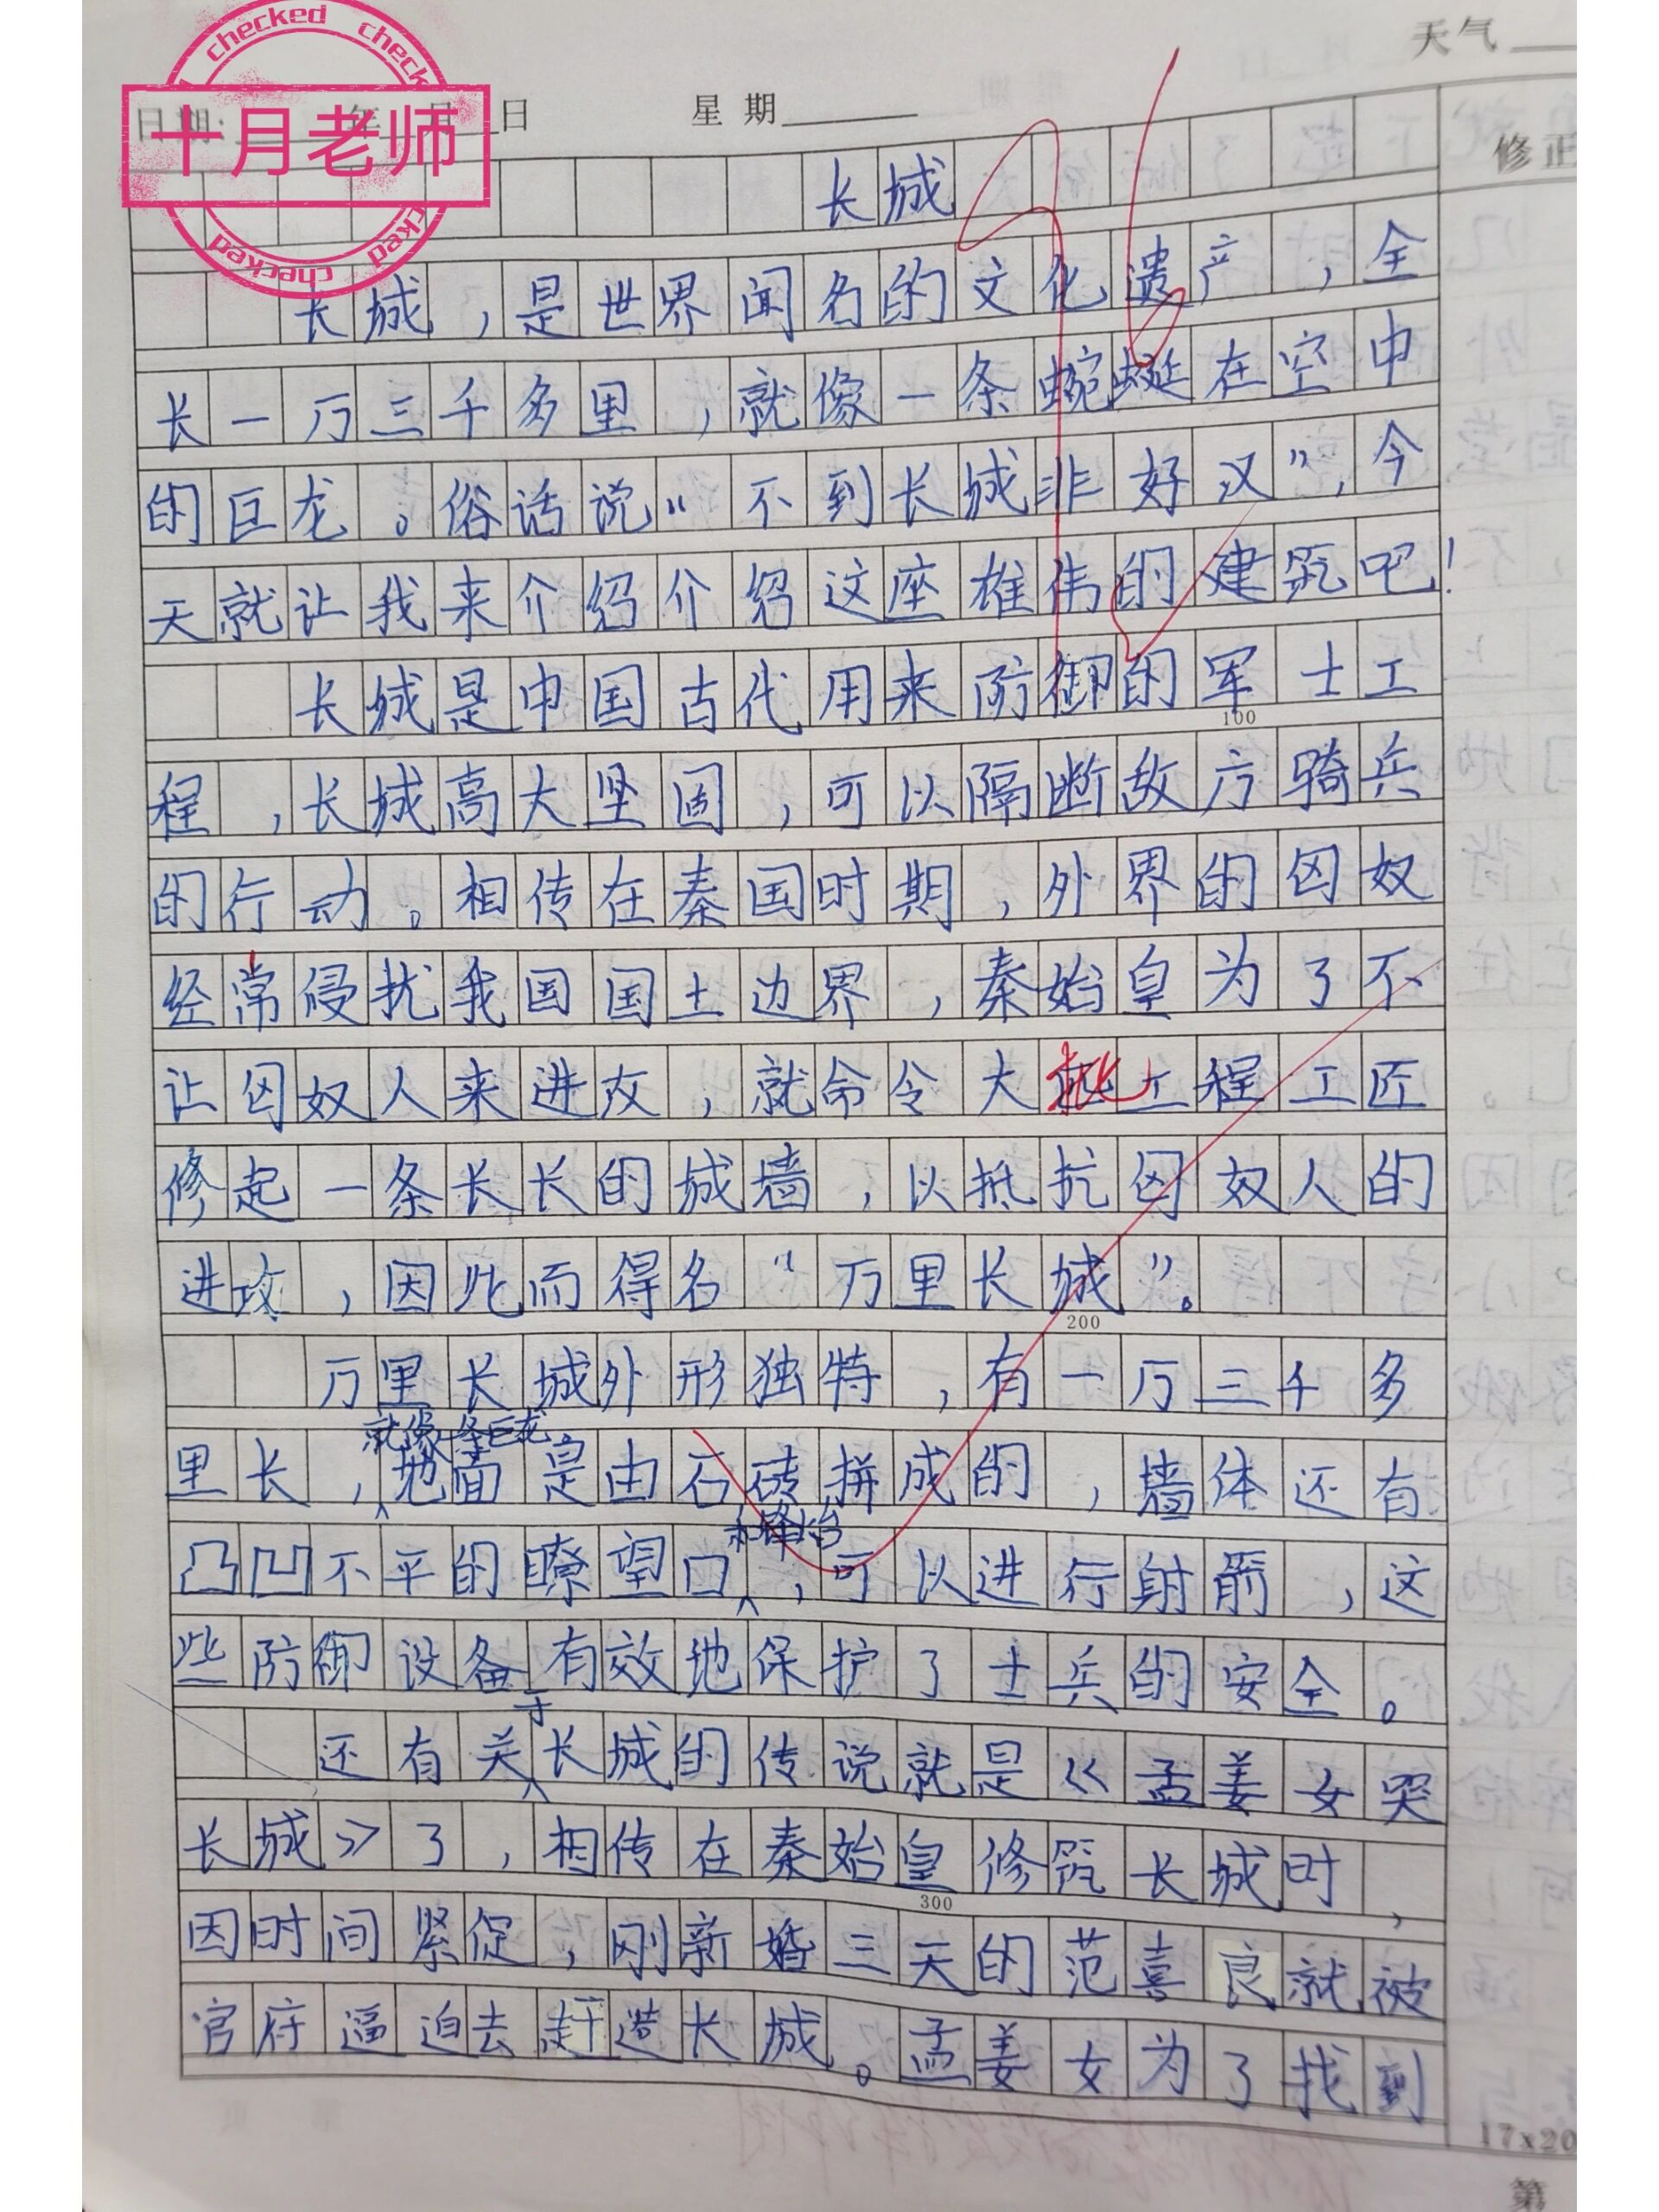 天气
checked checked
日期: 年 月 日 星期
十月老师
修正
checked checked
长城
长城，是世界闻名的文化遗产，全
长一万三千多里，就像一条蜿蜒在空中
的巨龙。俗话说“不到长城非好汉”，今
天就让我来介绍介绍这座雄伟的建筑吧！
长城是中国古代用来防御的军士工
100
程，长城高大坚固，可以隔断敌方骑兵
的行动。相传在秦国时期，外界的匈奴
经常侵扰我国国土边界，秦始皇为了不
让匈奴人来进攻，就命令大批工程工匠
修起一条长长的城墙，以抵抗匈奴人的
进攻，因此而得名“万里长城”。
200
万里长城外形独特，有一万三千多
就像一条巨龙
里长，地面是由石砖拼成的，墙体还有
和烽火台
凸凹不平的瞭望口，可以进行射箭，这
些防御设备有效地保护了士兵的安全。
于
还有关长城的传说就是《孟姜女哭
长城》了，相传在秦始皇修筑长城时，
300
因时间紧促，刚新婚三天的范喜良就被
官府逼迫去赶造长城。孟姜女为了找到
17x20
第